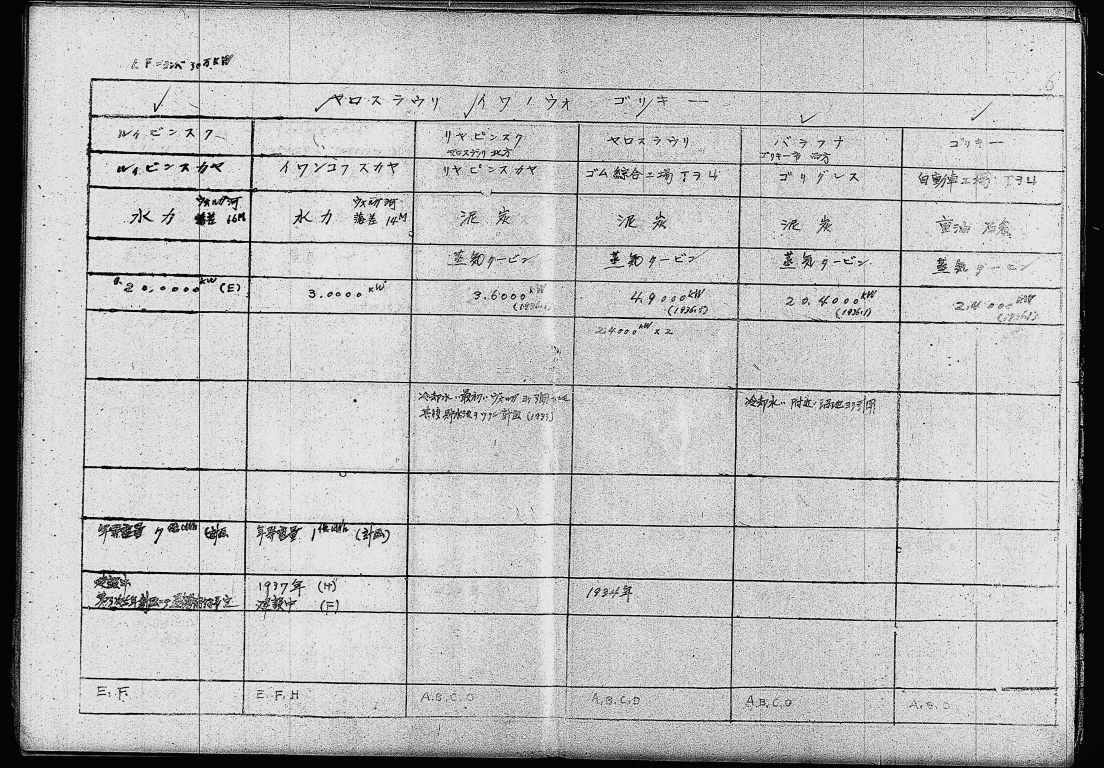 E.F=ヨレバ 30万KW
6
ヤロスラウリ イワノウオ ゴリキー
ルイビンスク リヤビンスク ヤロスラウリ バラフナ ゴリキー
ヤロスラウリ 北方 ゴリキー市 西方
ルイビンスカヤ イワンコフスカヤ リヤビンスカヤ ゴム綜合工場TЭЦ ゴリグレス 自動車工場TЭЦ
水力 ヴォルガ河 落差 16M 水力 ヴォルガ河 落差 14M 泥炭 泥炭 泥炭 重油
蒸気タービン 蒸気タービン 蒸気タービン 蒸気タービン
20.0000KW (E) 3.0000KW 3.6000KW 4.9000KW 20.4000KW 2.4000KW
(1936.1) (1936.1) (1936.1) (1936.1)
24000KW×2
冷却水ハ最初ハヴォルガヨリ引用 冷却水ハ附近ノ沼池ヨリ引用
其後貯水池ヲツクル計画 (1937)
年発電量 7億KWh (計画) 年発電量 1億KWh (計画)
建設中 1937年 (H) 1934年
建設中 (F)
E.F. E.F.H A.B.C.D A.B.C.D A.B.C.D A.B.D